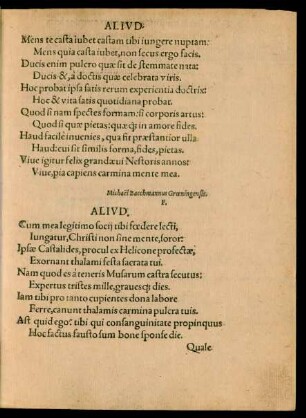 ALIVD.
Mens te casta iubet castam tibi iungere nuptam:
Mens quia casta iubet, non secus ergo facis.
Ducis enim pulcro quæ sit de stemmate nata:
Ducis &, à doctis quæ celebrata viris.
Hoc probat ipsa satis rerum experientia doctrix:
Hoc & vita satis quotidiana probat.
Quod si nam spectes formam: si corporis artus:
Quod si quæ pietas: quæq́; in amore fides.
Haud facile inuenies, qua sit præstantior vlla.
Haud: cui sit similis forma, fides, pietas.
Viue igitur felis grandæui Nestoris annos:
Viue, pia capiens carmina mente mea.
Michaël Bacchmannus Grœningensis.
F.
ALIVD.
Cum mea legitimo socij tibi fœdere lecti,
Iungatur, Christi non sine mente, soror:
Ipsæ Castalides, procul ex Helicone profectæ,
Exornant thalami festa sacrata tui.
Nam quod es à teneris Musarum castra secutus:
Expertus tristes mille, grauesq́; dies.
Iam tibi pro tanto cupientes dona labore
Ferre, canunt thalamis carmina pulcra tuis.
Ast quid ego? tibi qui consanguinitate propinquus
Hoc factus fausto sum bone sponse die.
Quale